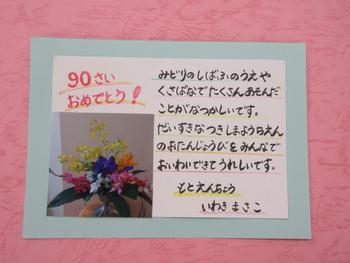 90さい
おめでとう!
みどりのしばふのうえや
くさばなでたくさんあそんだ
ことがなつかしいです。
だいすきなつきしまようちえん
のおたんじょうびをみんなで
おいわいできてうれしいです。
もとえんちょう
いわきまさこ